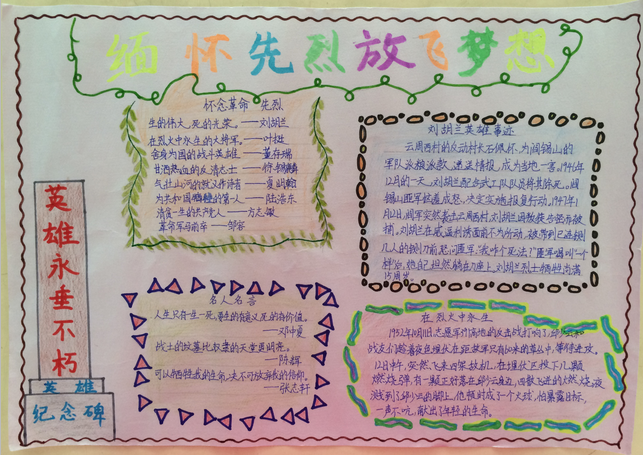 缅怀先烈放飞梦想
怀念革命先烈
生的伟大,死的光荣。——刘胡兰
在烈火中永生的大将军。——叶挺
舍身为国的战斗英雄——董存瑞
甘洒热血的反清志士——
气壮山河的就义作诗者——夏明翰
为共和国 的第一人——陆浩东
清贫一生的共产党人——方志敏
革命军马前卒——邹容
刘胡兰英雄事迹
云周西村的反动村长石佩怀,为阎锡山的
军队派粮派款,递送情报,成为当地一害。1946年
12月的一天,刘胡兰配合武工队队员将其除死。阎
锡山匪军恼羞成怒,决定实施报复行动。1947年1
月12日,阎军突然袭击云周西村,刘胡兰因叛徒告密而被
捕。刘胡兰在威逼利诱面前不为所动,被带到已连铡
几人的铡刀前,匪军:"我咋个死法?"匪军喝叫"一个
样"后,他自己坦然躺在刀座上。刘胡兰烈士牺牲尚未满
15周岁。
英雄永垂不朽
英雄
纪念碑
名人名言
人生只有一生一死,要生的有意义,死的有价值。
——邓中夏
战士的坟墓比奴隶的天堂更明亮。
——陈辉
可以牺牲我的生命,决不可放弃我的信仰。
——张志轩
在烈火中永生
1952年10月,志愿军对高地的反击战打响了,邱少云和
战友们趁着夜色埋伏在距敌军只有60米的草丛中,等待进攻。
12日中午,突然飞来四架敌机,在埋伏区投下几颗
燃烧弹,有一颗正好落在邱少云身边,四散飞迸的火燃烧液
溅到了邱少云的脚上,他顿时成了一个火球,怕暴露目标,
一声不吭,献出了年轻的生命。